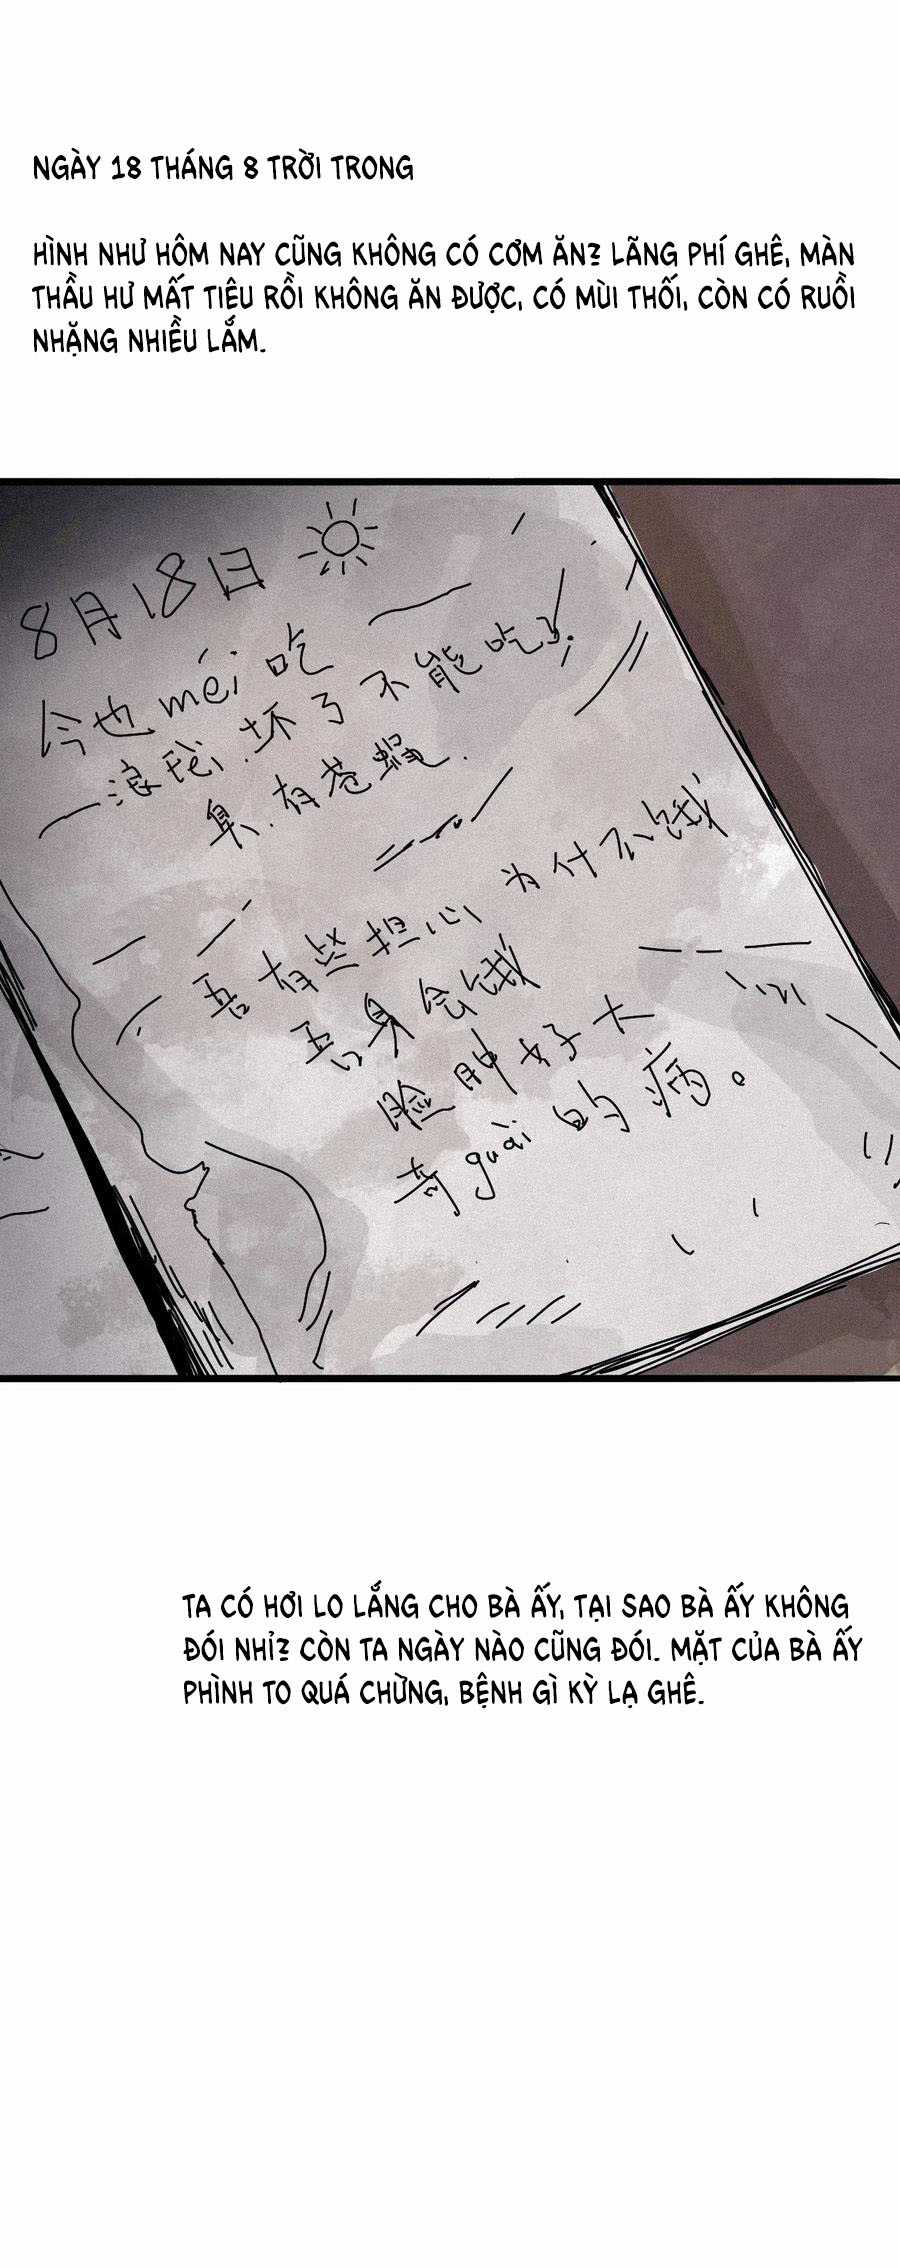 NGÀY 18 THÁNG 8 TRỜI TRONG
HÌNH NHƯ HÔM NAY CŨNG KHÔNG CÓ CƠM ĂN? LÃNG PHÍ GHÊ, MÀN
THẦU HƯ MẤT TIÊU RỒI KHÔNG ĂN ĐƯỢC, CÓ MÙI THỐI, CÒN CÓ RUỒI
NHẶNG NHIỀU LẮM.
8月18日
今也méi吃
坏了不能吃了.
臭.有苍蝇.
有些担心 为什不饿
身会饿
脸肿好大
奇guài的病。
TA CÓ HƠI LO LẮNG CHO BÀ ẤY, TẠI SAO BÀ ẤY KHÔNG
ĐÓI NHỈ? CÒN TA NGÀY NÀO CŨNG ĐÓI. MẶT CỦA BÀ ẤY
PHÌNH TO QUÁ CHỪNG, BỆNH GÌ KỲ LẠ GHÊ.